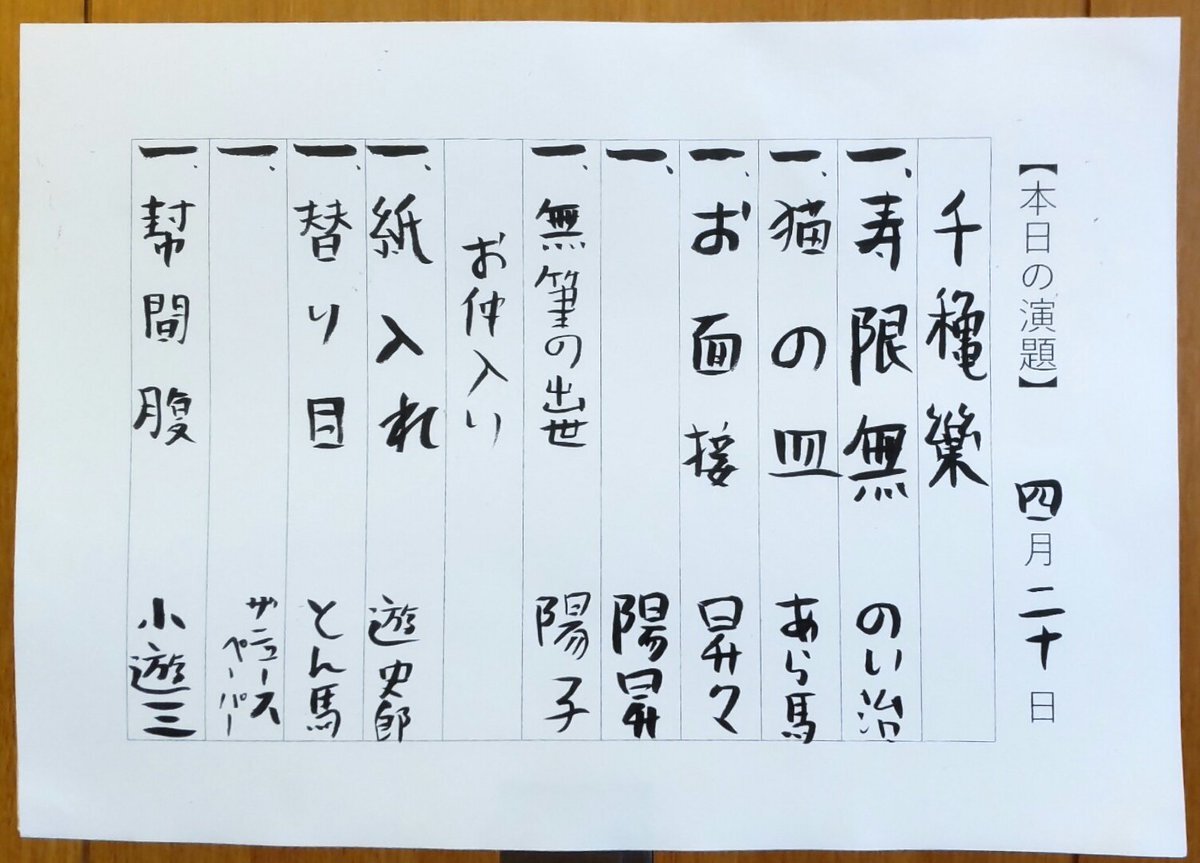 【本日の演題】 四月二十日
千穐樂
一、寿限無 のい治
一、猫の皿 あら馬
一、お面接 昇々
一、 陽昇
一、無筆の出世 陽子
お仲入り
一、紙入れ 遊史郎
一、替り目 とん馬
一、 ザ・ニュースペーパー
一、幇間腹 小遊三